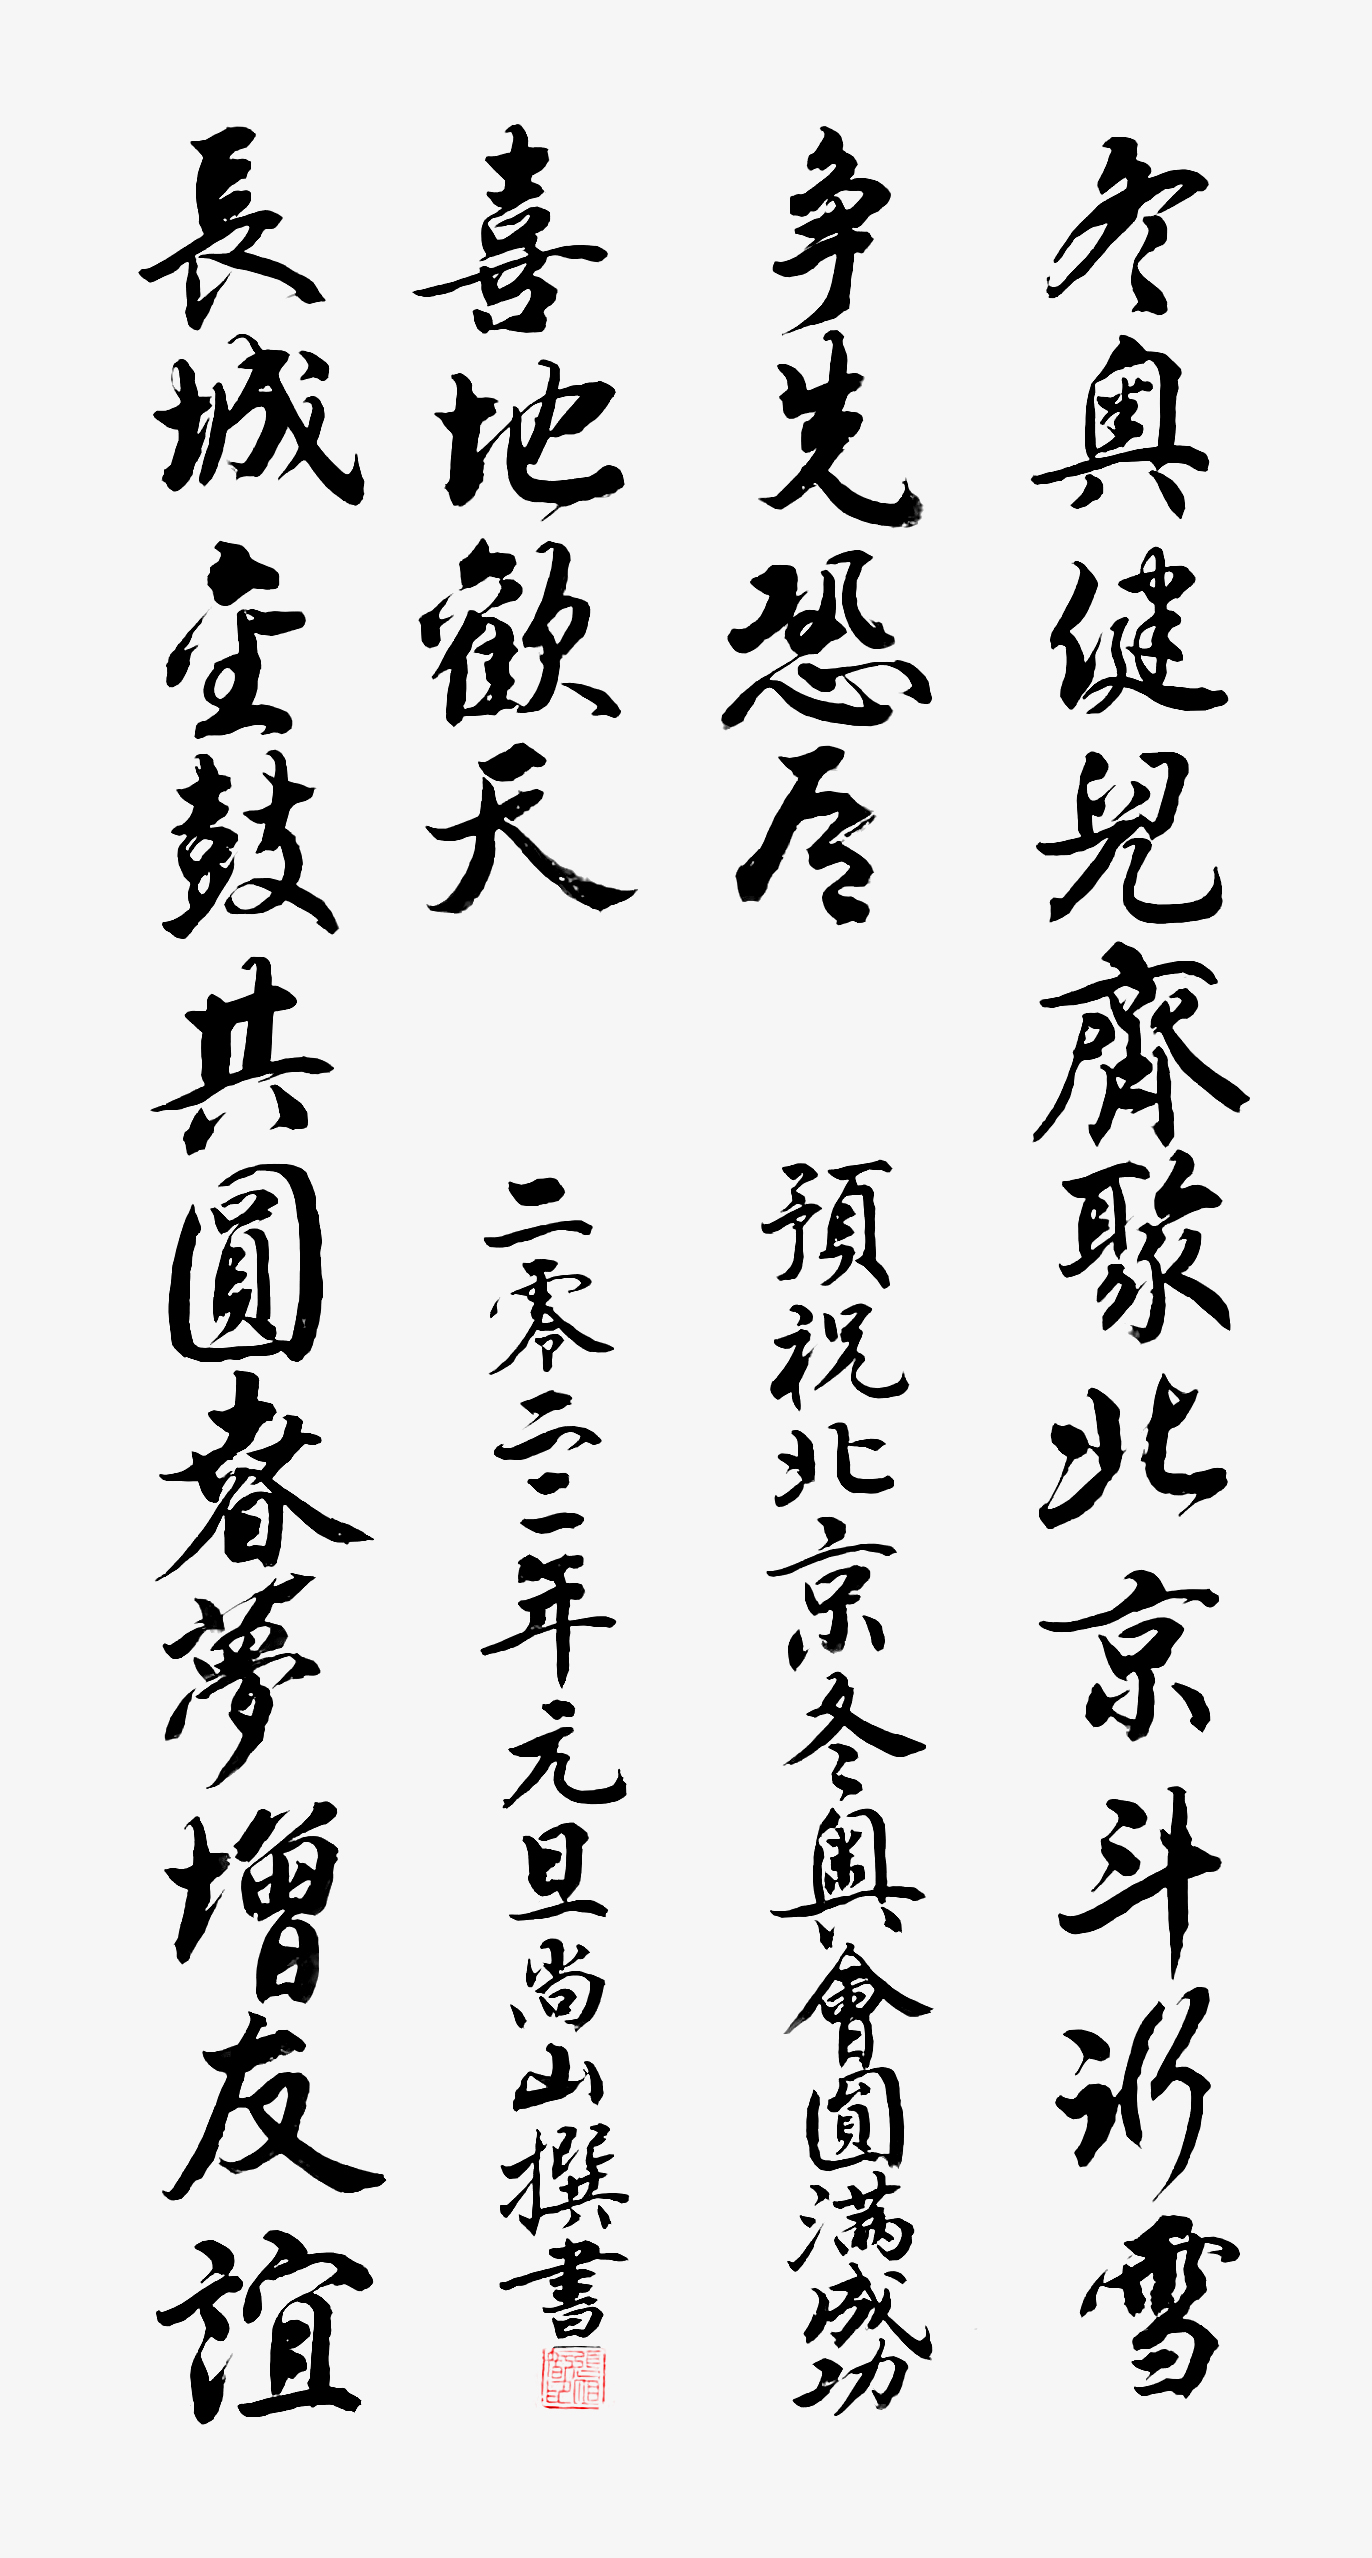 冬奧健兒齊聚北京斗冰雪
争先恐后
預祝北京冬奧會圓满成功
長城金鼓共圓春夢增友誼
喜地歡天
二零二二年元旦尚山撰書